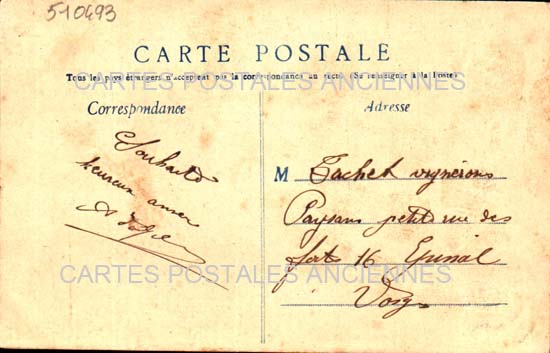 510493
CARTE POSTALE
Tous les pays étrangers n'acceptent pas la correspondance au recto (Se renseigner à la Poste)
CARTES POSTALES ANCIENNES
Correspondance
Adresse
Souhaits
heureux
M Tachet vignerons
Paysans petit rue des
forts 16 Epinal
Vosges
CARTES POSTALES ANCIENNES